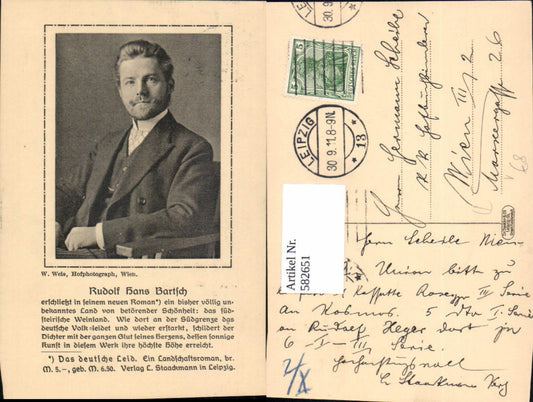 W. Weis, Hofphotograph, Wien.
Rudolf Hans Bartsch
erschließt in seinem neuen Roman*) ein bisher völlig un-
bekanntes Land von betörender Schönheit: das süd-
steirische Weinland. Wie dort an der Südgrenze das
deutsche Volk leidet und wieder erstarkt, schildert der
Dichter mit der ganzen Glut seines Herzens, dessen sonnige
Kunst in diesem Werk ihre höchste Höhe erreicht.
*) Das deutsche Leid. Ein Landschaftsroman, br.
M. 5.–, geb. M. 6.50. Verlag L. Staackmann in Leipzig.
30 9
5
LEIPZIG
30 9.11.8-9N.
* 13 *
Herrmann Scheibe
k k
Wien III/2
Marxergasse 26
Artikel Nr.
582651
Herrn Scheibe Wien
Union bitt zu
Kassette Rosegger IV Serie
An Kosmos. 5 dto I. Serie
an Rudolf Heger dort je
6 – I – III, Serie.
Hochachtungsvoll
L Staackmann Verl